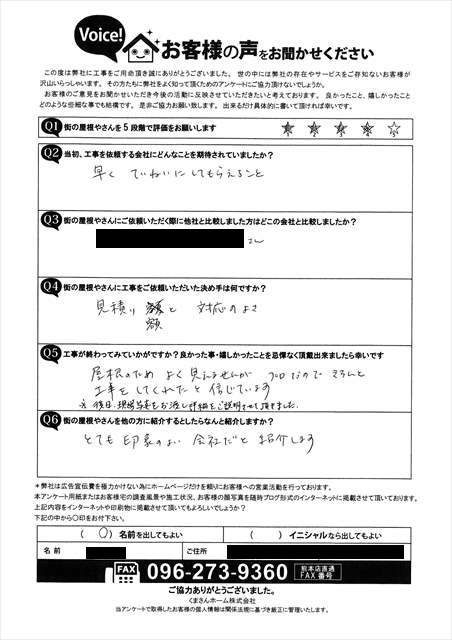 Voice!
お客様の声をお聞かせください
この度は弊社に工事をご用命頂き誠にありがとうございました。世の中には弊社の存在やサービスをご存知ないお客様が
沢山いらっしゃいます。その方たちに弊社をよく知って頂くためのアンケートにご協力頂けないでしょうか。
お客様のご意見をお聞かせいただき今後の活動に反映させていただきたいと考えております。良かったこと、嬉しかったこと
どのような些細な事でも結構です。是非ご協力お願い致します。出来るだけ具体的に書いて頂ければ幸いです。
Q1 街の屋根やさんを5段階で評価をお願いします ★ ★ ★ ★ ☆
Q2 当初、工事を依頼する会社にどんなことを期待されていましたか?
早く ていねいにしてもらえること
Q3 街の屋根やさんにご依頼いただく際に他社と比較しました方はどこの会社と比較しましたか?
さん
Q4 街の屋根やさんに工事をご依頼いただいた決め手は何ですか?
見積り額と 対応のよさ
額
Q5 工事が終わってみていかがですか?良かった事・嬉しかったことを忌憚なく頂戴出来ましたら幸いです
屋根のため よく見えませんが プロなので きちんと
工事をしてくれたと信じています
※後日、現場写真をお渡し詳細をご説明させて頂きました。
Q6 街の屋根やさんを他の方に紹介するとしたらなんと紹介しますか?
とても印象のよい 会社だと 紹介します
*弊社は広告宣伝費を極力かけない為にホームページだけを頼りにお客様への営業活動を行っております。
本アンケート用紙またはお客様宅の調査風景や施工状況、お客様の顔写真を随時ブログ形式のインターネットに掲載させて頂いております。
上記内容をインターネットや印刷物に掲載させて頂いてもよろしいでしょうか?
下記の中から〇印をお付下さい。
(〇)名前を出してもよい ( )イニシャルなら出してもよい
名前 ご住所
FAX 096-273-9360 熊本店直通 FAX番号
ご協力ありがとうございました。
くまさんホーム株式会社
当アンケートで取得したお客様の個人情報は関係法規に基づき厳正に管理いたします。